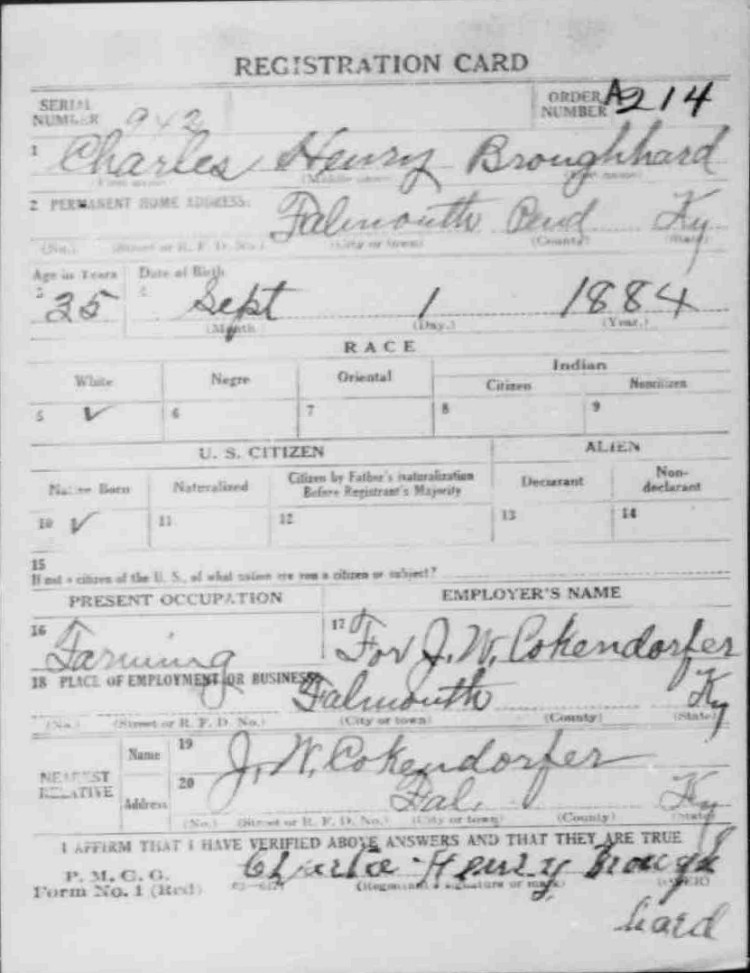 REGISTRATION CARD
SERIAL NUMBER 942 ORDER NUMBER A214
1 Charles Henry Broughhard
(First name) (Middle name) (Last name)
2 PERMANENT HOME ADDRESS: Falmouth Pend Ky
(No.) (Street or R. F. D. No.) (City or town) (County) (State)
Age in Years Date of Birth
3 35 4 Sept 1 1884
(Month) (Day.) (Year.)
RACE
White Negro Oriental Indian
Citizen Noncitizen
5 ✓ 6 7 8 9
U. S. CITIZEN ALIEN
Native Born Naturalized Citizen by Father's Naturalization Before Registrant's Majority Declarant Non-declarant
10 ✓ 11 12 13 14
15
If not a citizen of the U. S., of what nation are you a citizen or subject?
PRESENT OCCUPATION EMPLOYER'S NAME
16 Farming 17 For J. W. Cokendorfer
18 PLACE OF EMPLOYMENT OR BUSINESS: Falmouth Ky
(No.) (Street or R. F. D. No.) (City or town) (County) (State)
NEAREST RELATIVE Name 19 J. W. Cokendorfer
Address 20 Fal. Ky
(No.) (Street or R. F. D. No.) (City or town) (County) (State)
I AFFIRM THAT I HAVE VERIFIED ABOVE ANSWERS AND THAT THEY ARE TRUE
P. M. G. O.
Form No. 1 (Red) Charlie Henry Brough
(Registrant's signature or mark) (OVER)
hard